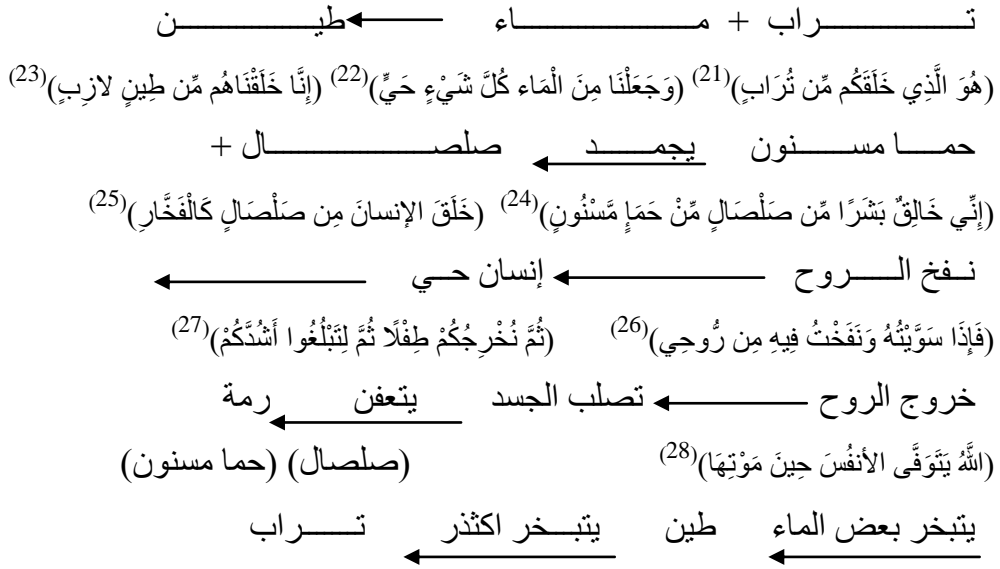 تــراب + مــاء ← طيــن
(هُوَ الَّذِي خَلَقَكُم مِّن تُرَابٍ)(21) (وَجَعَلْنَا مِنَ الْمَاء كُلَّ شَيْءٍ حَيٍّ)(22) (إِنَّا خَلَقْنَاهُم مِّن طِينٍ لازِبٍ)(23)
حمــا مســنون يجمــد ← صلصــال +
(إِنِّي خَالِقٌ بَشَرًا مِّن صَلْصَالٍ مِّنْ حَمَإٍ مَّسْنُونٍ)(24) (خَلَقَ الإنسانَ مِن صَلْصَالٍ كَالْفَخَّارِ)(25)
نــفخ الــروح ← إنسان حــي ←
(فَإِذَا سَوَّيْتُهُ وَنَفَخْتُ فِيهِ مِن رُّوحِي)(26) (ثُمَّ نُخْرِجُكُمْ طِفْلًا ثُمَّ لِتَبْلُغُوا أَشُدَّكُمْ)(27)
خروج الروح ← تصلب الجسد يتعفن ← رمة
(اللَّهُ يَتَوَفَّى الأنفُسَ حِينَ مَوْتِهَا)(28) (صلصال) (حما مسنون)
يتبخر بعض الماء ← طين يتبــخر اكثذر ← تــراب